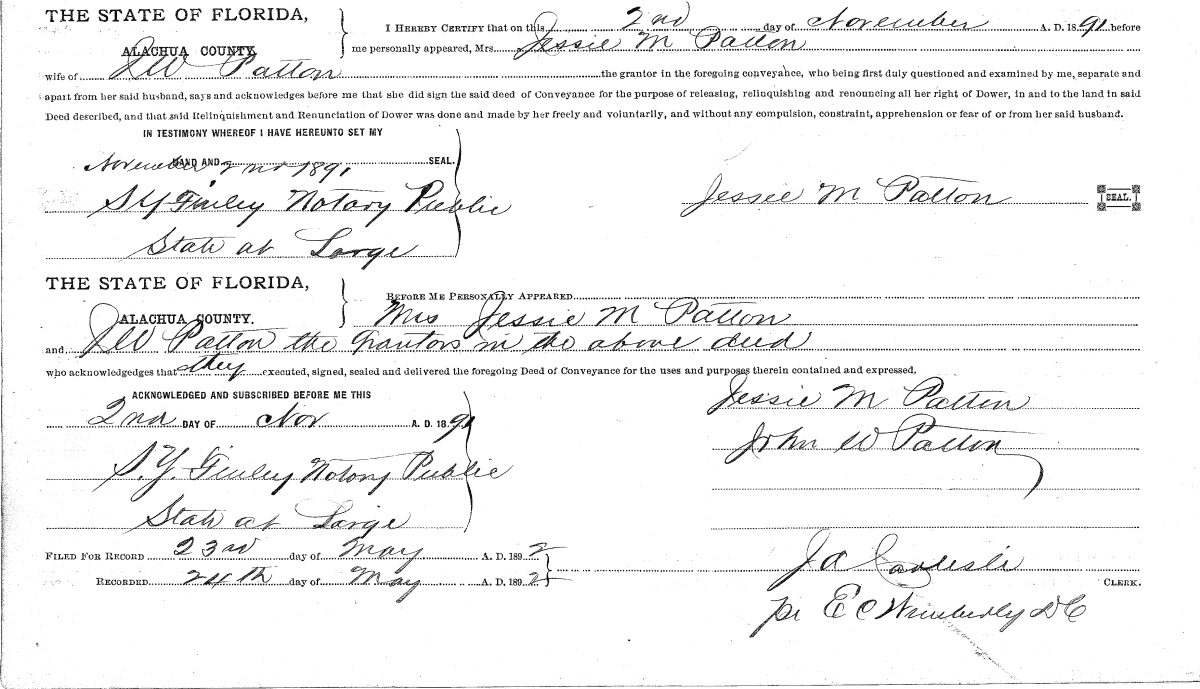 THE STATE OF FLORIDA,
ALACHUA COUNTY.
I HEREBY CERTIFY that on this 2nd day of November A. D. 1891 before
me personally appeared, Mrs. Jessie M Patton
wife of JW Patton the grantor in the foregoing conveyance, who being first duly questioned and examined by me, separate and
apart from her said husband, says and acknowledges before me that she did sign the said deed of Conveyance for the purpose of releasing, relinquishing and renouncing all her right of Dower, in and to the land in said
Deed described, and that said Relinquishment and Renunciation of Dower was done and made by her freely and voluntarily, and without any compulsion, constraint, apprehension or fear of or from her said husband.
IN TESTIMONY WHEREOF I HAVE HEREUNTO SET MY
HAND AND SEAL.
November 2nd 1891
S Y Finley Notary Public
State at Large
Jessie M Patton SEAL.
THE STATE OF FLORIDA,
ALACHUA COUNTY.
BEFORE ME PERSONALLY APPEARED
Mrs Jessie M Patton
and JW Patton the Grantors in the above deed
who acknowledgedges that they executed, signed, sealed and delivered the foregoing Deed of Conveyance for the uses and purposes therein contained and expressed.
ACKNOWLEDGED AND SUBSCRIBED BEFORE ME THIS
2nd DAY OF Nov A. D. 1891
S. Y. Finley Notary Public
State at Large
Jessie M Patton
John W Patton
FILED FOR RECORD 23rd day of May A. D. 1892
RECORDED 24th day of May A. D. 1892
J A Carlisle CLERK.
pr E C Wimberly D C